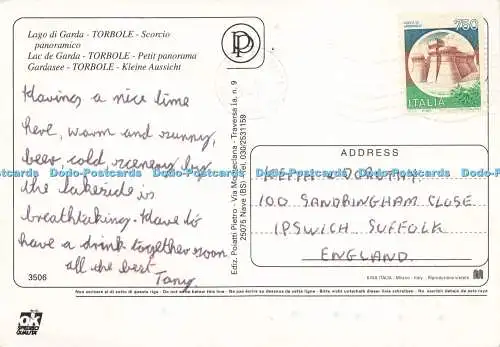 Lago di Garda - TORBOLE - Scorcio
panoramico
Lac de Garda - TORBOLE - Petit panorama
Gardasee - TORBOLE - Kleine Aussicht
Having a nice time
here, warm and sunny,
beer cold, scenery by
the lakeside is
breathtaking. Have to
have a drink together soon
all the best
Tony
3506
OK
Ediz. Poiatti Pietro - Via M. - Traversa Ia, n. 9
25075 Nave (BS) - Tel. 030/2531159
750
ITALIA
ADDRESS
KEITH & DOROTHY
100 SANDRINGHAM CLOSE
IPSWICH SUFFOLK
ENGLAND
Milano - Italy - Riproduzione vietata
Non scrivere al di sotto di questa riga - Do not write below this line - Ne pas écrire au dessous de cette ligne - Bitte nicht unterhalb dieser linie schreiben - No escribir debajo de esta raya
Dodo-Postcards Dodo-Postcards Dodo-Postcards Dodo-Postcards